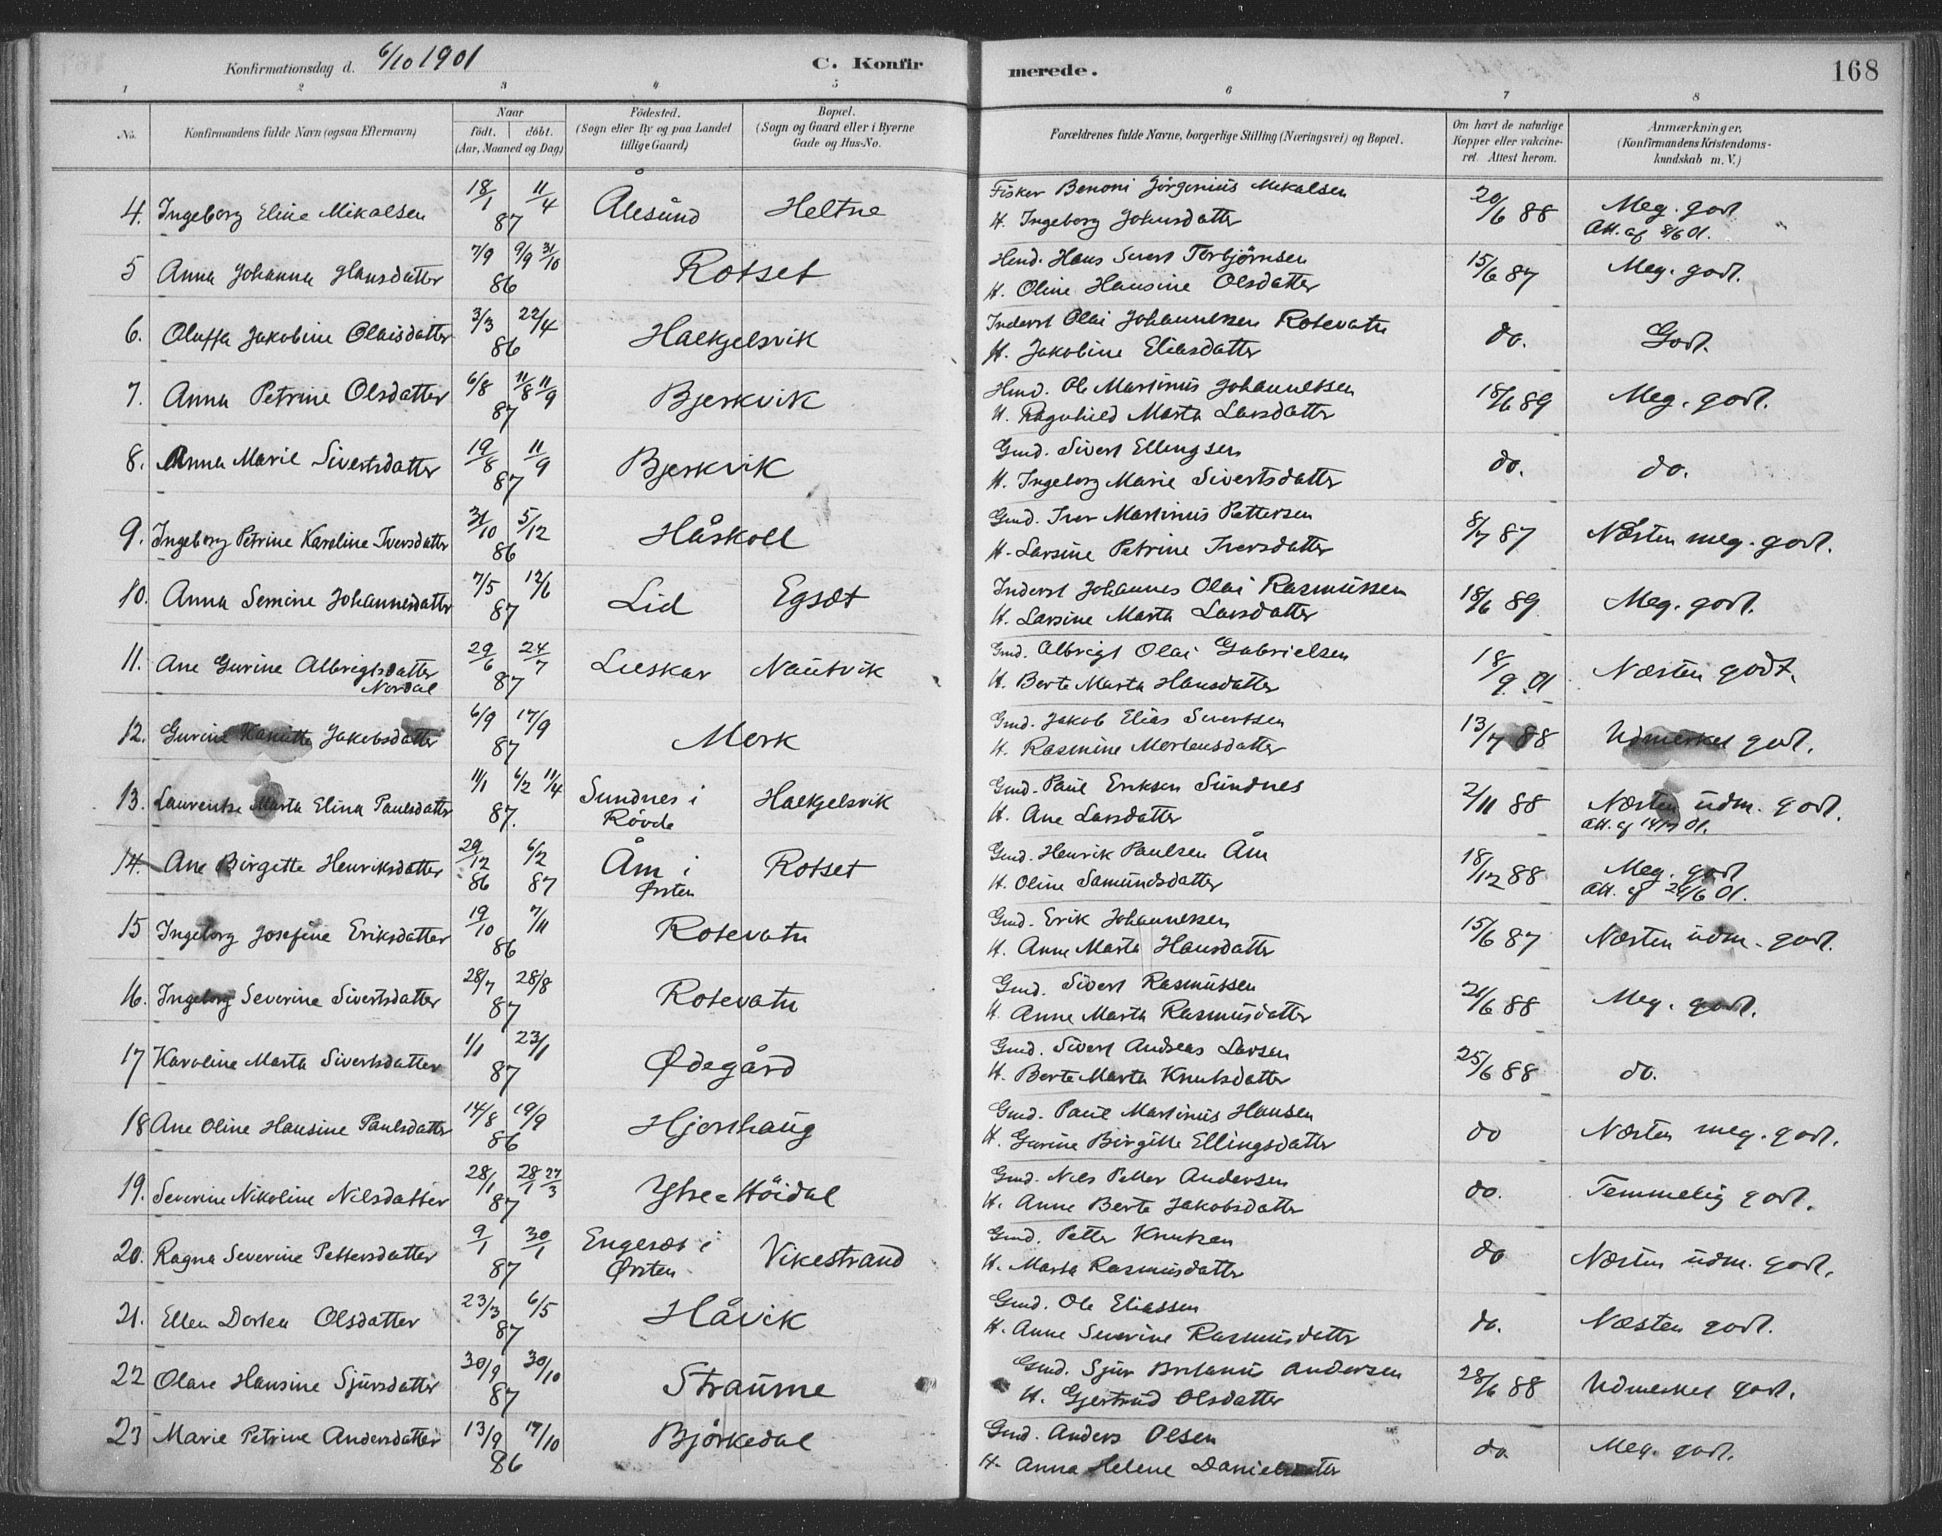 Konfirmationsdag d. 6/10 1901 C. Konfirmerede. 168
1 2 3 4 5 6 7 8
No. Konfirmandens fulde Navn (ogsaa Efternavn) Naar født. døbt. (Aar, Maaned og Dag) Fødested. (Sogn eller By og paa Landet tillige Gaard) Bopæl. (Sogn og Gaard eller i Byerne Gade og Hus-No. Forældrenes fulde Navne, borgerlige Stilling (Næringsvei) og Bopæl. Om havt de naturlige Kopper eller vakcineret. Attest herom. Anmærkninger. (Konfirmandens Kristendomskundskab m. V.)
4. Ingeborg Eline Mikalsen 18/1 11/4 87 Ålesund Heltne Fisker Benoni Jørgenius Mikalsen 20/6 88 Meg. godt
H. Ingeborg Johnsdatter Att. af 8/6 01.
5 Anna Johanna Hansdatter 7/9 9/9 31/10 86 Rotset Gmd. Hans Sivert Torbjørnsen 15/6 87 Meg. godt.
H. Oline Hansine Olsdatter
6. Oluffa Jakobine Olaisdatter 3/3 22/4 86 Halkjelsvik Inderst Olai Johannessen Rotevatn do. Godt.
H. Jakobine Eliasdatter
7. Anna Petrine Olsdatter 6/8 11/8 11/9 87 Bjerkvik Gmd. Ole Martinus Johannessen 18/6 89 Meg. godt.
H. Ragnhild Marta Larsdatter
8. Anna Marie Sivertsdatter 19/8 11/9 87 Bjerkvik Gmd. Sivert Ellingsen do. do.
H. Ingeborg Marie Sivertsdatter
9. Ingeborg Petrine Karoline Iversdatter 31/10 5/12 86 Håskoll Gmd. Iver Martinus Pettersen 8/7 87 Næsten meg. godt.
H. Larsine Petrine Iversdatter
10. Anna Semine Johannesdatter 7/5 12/6 87 Lid Egsæt Inderst Johannes Olai Rasmussen 18/6 89 Meg. godt.
H. Larsine Marta Larsdatter
11. Ane Gurine Albrigtsdatter 29/6 24/7 87 Lieskar Nautvik Gmd. Albrigt Olai Gabrielsen 18/9 01 Næsten godt.
Nordal H. Berte Marta Hansdatter
12. Gurine Jakobsdatter 6/9 17/9 87 Mork Gmd. Jakob Elias Sivertsen 13/7 88 Udmerket godt.
H. Rasmine Mortensdatter
13. Laurentse Marta Elina Paulsdatter 11/1 6/2 11/4 87. Sundnes i Halkjelsvik Gmd. Paul Eriksen Sundnes 2/11 88 Næsten udm. godt.
Røvde H. Ane Larsdatter Att. af 01.
14. Ane Birgitte Henriksdatter 29/12 86 6/2 87 Åm i Rotset Gmd. Henrik Paulsen Åm 18/12 88 Meg. godt
Ørsten H. Oline Samundsdatter Att. af 24/6 01.
15 Ingeborg Josefine Eriksdatter 19/10 7/11 86 Rotevatn Gmd. Erik Johannessen 15/6 87 Næsten udm. godt.
H. Anne Marta Hansdatter
16. Ingeborg Severine Sivertsdatter 28/7 28/8 87 Rotevatn Gmd. Sivert Rasmussen 21/6 88 Meg. godt.
H. Anne Marta Rasmusdatter
17 Karoline Marta Sivertsdatter 1/1 23/1 87 Ødegård Gmd. Sivert Andreas Larsen 25/6 88 do.
H. Berte Marta Knutsdatter
18 Ane Oline Hansine Paulsdatter 14/8 19/9 86 Hjorthaug Gmd. Paul Martinus Hansen do Næsten meg. godt.
H. Gurine Birgitte Ellingsdatter
19. Severine Nikoline Nilsdatter 28/1 28/1 27/3 87 Ytre-Høidal Gmd. Nils Petter Andersen do. Temmelig godt.
H. Anne Berte Jakobsdatter
20. Ragna Severine Pettersdatter 9/1 30/1 87 Engeset i Vikestrand Gmd. Petter Knutsen do Næsten udm. godt.
Ørsten H. Marta Rasmusdatter
21. Ellen Dortea Olsdatter 23/3 6/5 87 Håvik Gmd. Ole Eliassen do. Næsten godt.
H. Anne Severine Rasmusdatter
22 Olave Hansine Sjursdatter 30/9 30/10 87 Straume Gmd. Sjur Andersen 28/6 88 Udmerket godt.
H. Gjertrud Olsdatter
23 Marie Petrine Andersdatter 13/9 17/10 86 Bjørkedal Gmd. Anders Olsen do. Meg. godt.
H. Anna Helene Danielsdatter